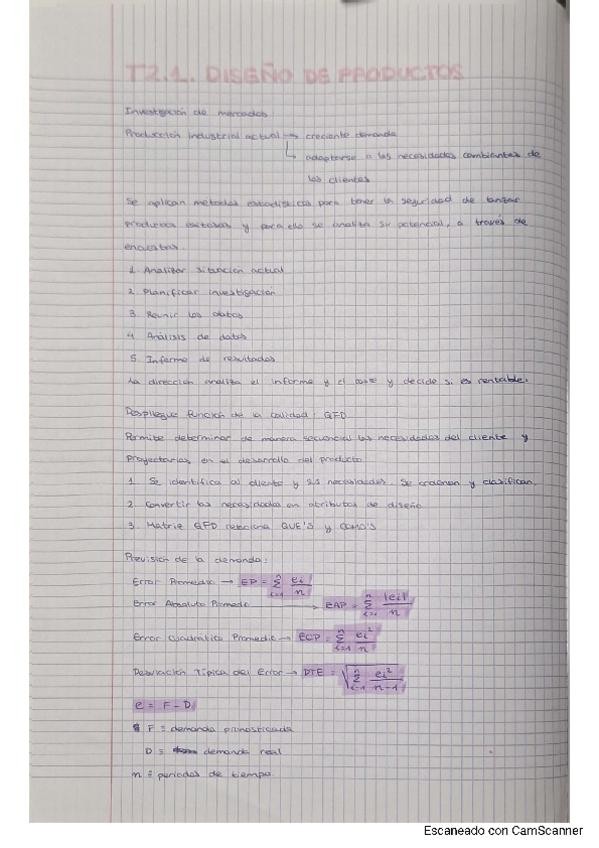 T2.1. DISEÑO DE PRODUCTOS
Investigación de mercados
Producción industrial actual → creciente demanda
↳ adaptarse a las necesidades cambiantes de
los clientes
Se aplican métodos estadísticos para tener la seguridad de lanzar
productos exitosos y para ello se analiza su potencial, a través de
encuestas.
1. Analizar situación actual
2. Planificar investigación
3. Reunir los datos
4. Análisis de datos
5. Informe de resultados
La dirección analiza el informe y el coste y decide si es rentable.
Despliegue función de la calidad: QFD
Permite determinar de manera secuencial las necesidades del cliente y
proyectarlas, en el desarrollo del producto
1. Se identifica al cliente y sus necesidades. Se ordenan y clasifican.
2. Convertir las necesidades en atributos de diseño
3. Matriz QFD relaciona QUE'S y COMO'S
Previsión de la demanda:
Error Promedio → EP = Σ(i=1, n) ei/n
Error Absoluto Promedio → EAP = Σ(i=1, n) |ei|/n
Error Cuadrático Promedio → ECP = Σ(i=1, n) ei²/n
Desviación Típica del Error → DTE = √(Σ(i=1, n) ei²/(n-1))
e = F - D
F = demanda pronosticada
D = demanda real
n = periodos de tiempo
Escaneado con CamScanner